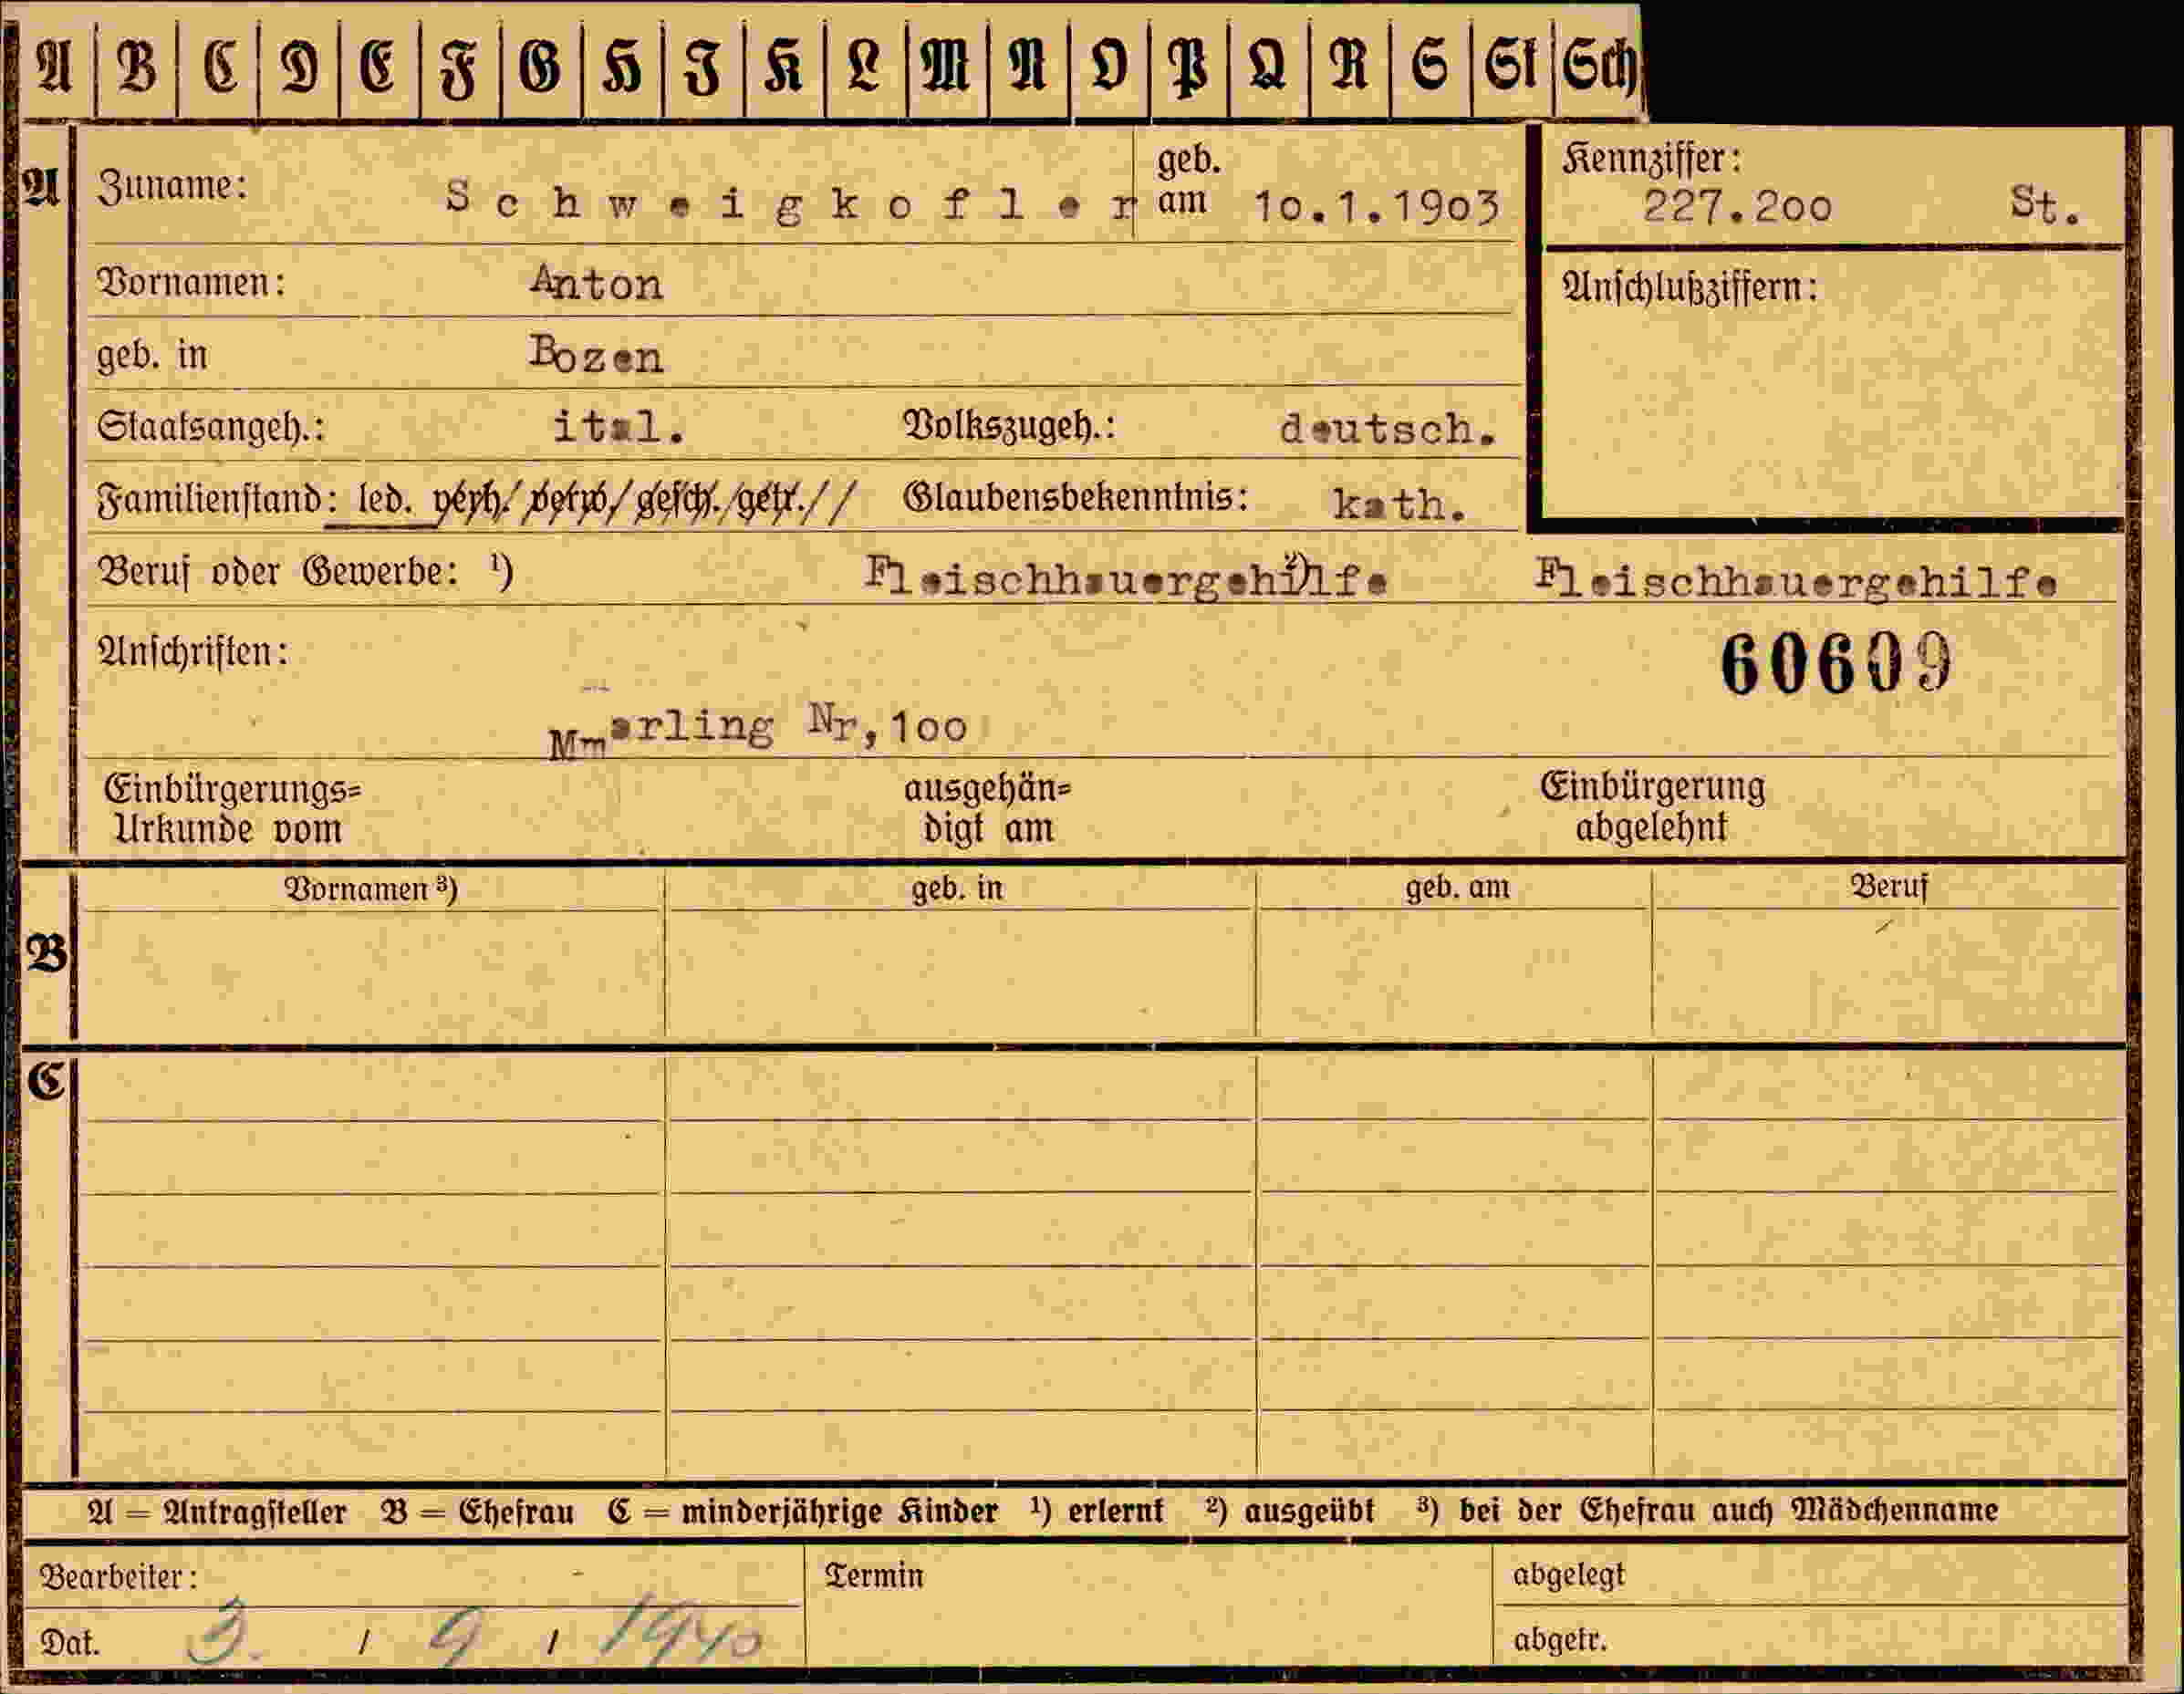 A B C D E F G H I K L M N O P Q R S St Sch
A Zuname: Schweigkofler geb. am 10.1.1903 Kennziffer: 227.200 St.
Vornamen: Anton Anschlußziffern:
geb. in Bozen
Staatsangeh.: ital. Volkszugeh.: deutsch.
Familienstand: led. verh./ verw./ gesch./getr.// Glaubensbekenntnis: kath.
Beruf oder Gewerbe: ¹) Fleischhauergehilfe ²) Fleischhauergehilfe
Anschriften: 60609
Mmarling Nr,100
Einbürgerungs= ausgehän= Einbürgerung
Urkunde vom digt am abgelehnt
Vornamen ³) geb. in geb. am Beruf
B
C
A = Antragsteller B = Ehefrau C = minderjährige Kinder ¹) erlernt ²) ausgeübt ³) bei der Ehefrau auch Mädchenname
Bearbeiter: Termin abgelegt
Dat. 3. / 9 / 1940 abgetr.